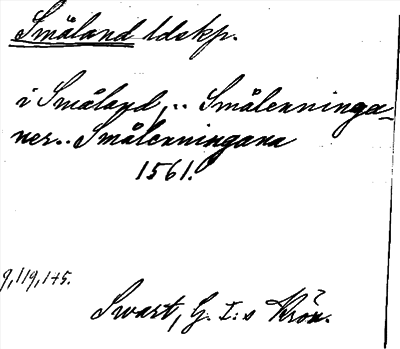 Småland ldskp.
i Småland, .. Smålenninga-
ner .. Smålenningana
1561.
9, 119, 145.
Swart, G. I:s Krön.